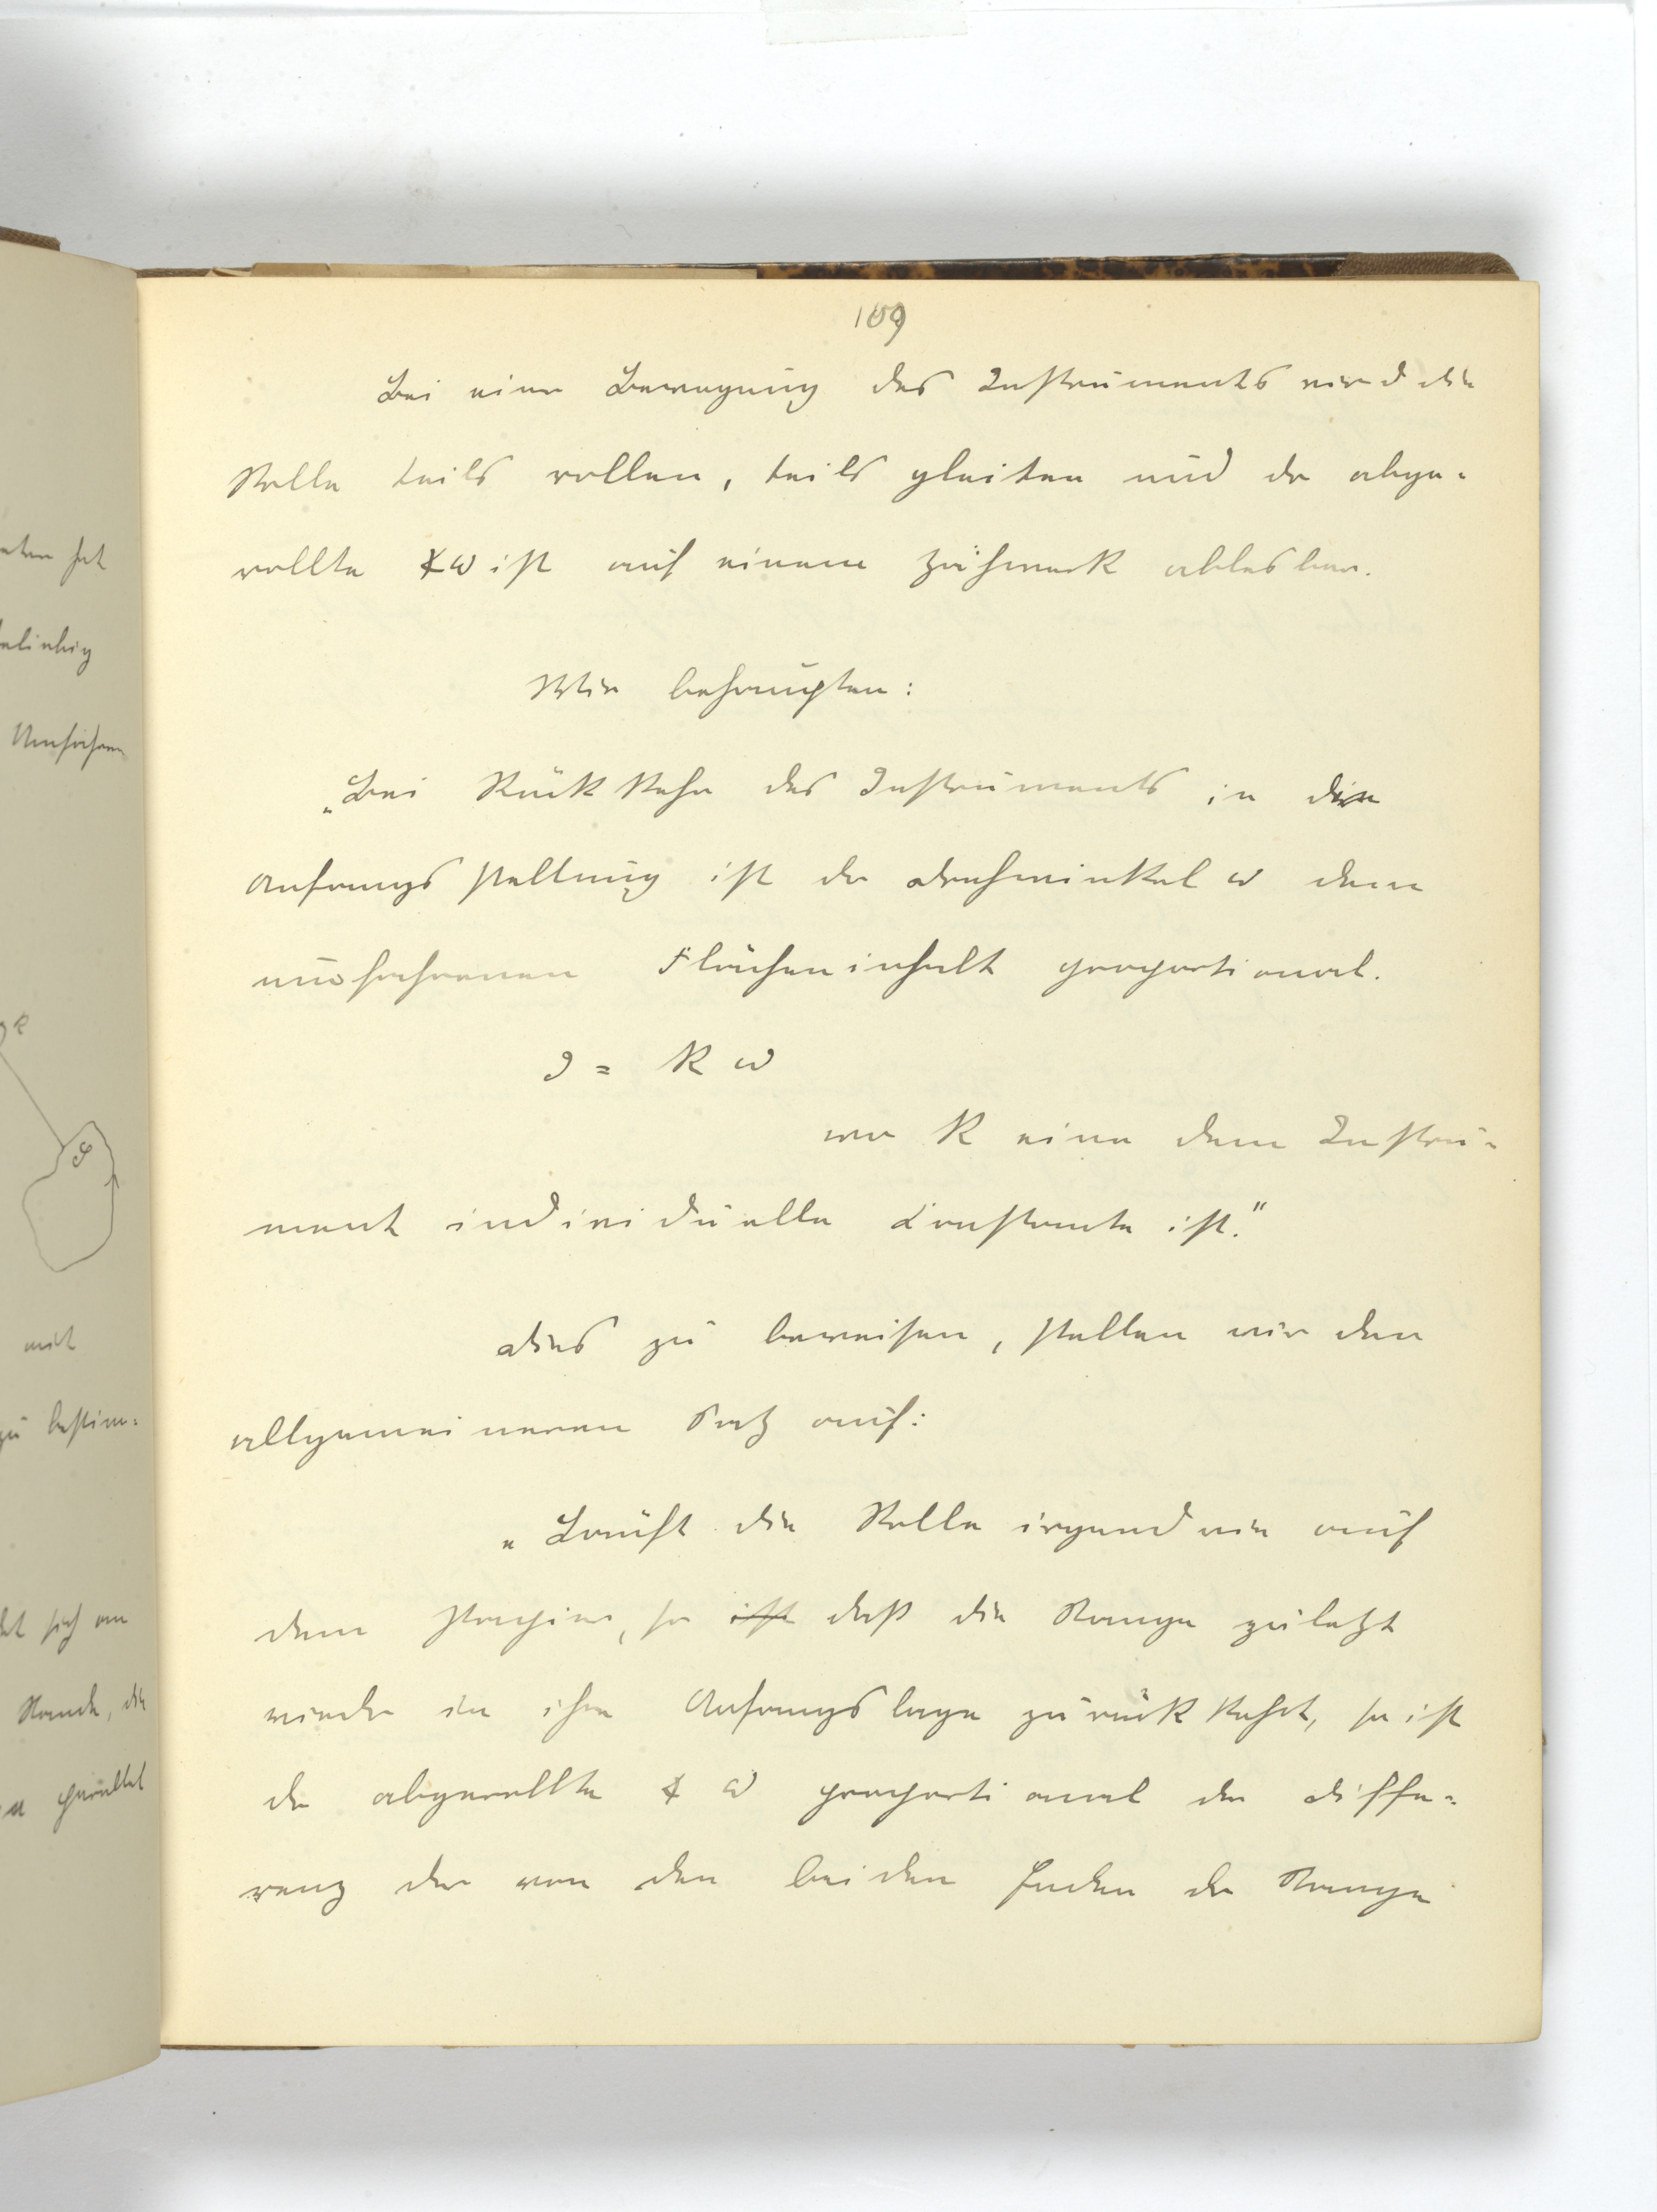 109
Bei einer Bewegung des Instruments wird die
Rolle teils rollen, teils gleiten und der abge-
rollte ∢ω ist auf einem Zählwerk ablesbar.
Wir behaupten:
„Bei Rückkehr des Instruments in die
Anfangsstellung ist der Drehwinkel ω dem
umfahrenen Flächeninhalt proportional.
J = k ω
wo k eine dem Instru-
ment individuelle Constante ist."
Dies zu beweisen, stellen wir den
allgemeineren Satz auf:
„Läuft die Rolle irgendwie auf
dem Papier, so ist daß die Stange zuletzt
wieder in ihre Anfangslage zurückkehrt, so ist
der abgerollte ∢ ω proportional der Diffe-
renz der von den beiden Enden der Stange
hat
Umfahren
k
J
mit
zu bestim-
sich am
die
parallel